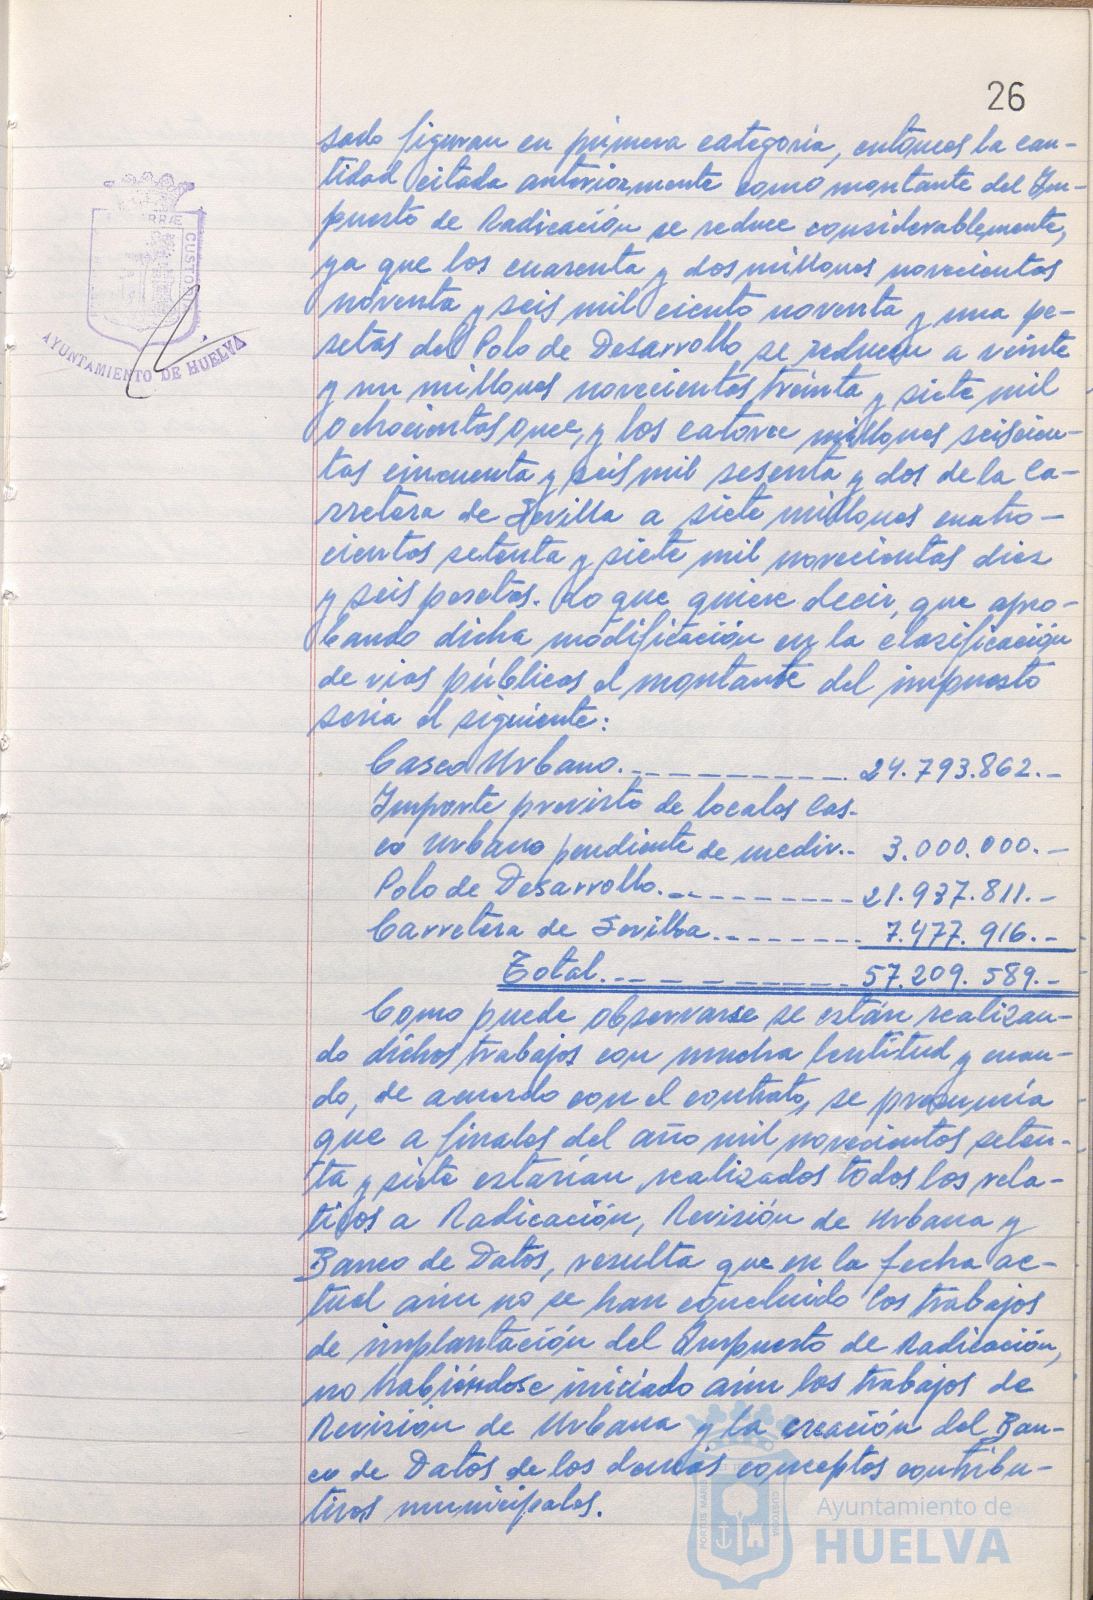 26
sado figuran en primera categoría, entonces la can-
tidad citada anteriormente como montante del Im-
puesto de Radicación se reduce considerablemente,
ya que los cuarenta y dos millones novecientos
noventa y seis mil ciento noventa y una pe-
setas del Polo de Desarrollo se reducen a veinte
y un millones novecientos treinta y siete mil
ochocientos once, y los catorce millones seiscien-
tas cincuenta y seis mil sesenta y dos de la Ca-
rretera de Sevilla a siete millones cuatro-
cientos setenta y siete mil novecientos diez
y seis pesetas. Lo que quiere decir, que apro-
bando dicha modificación en la clasificación
de vias públicas el montante del impuesto
seria el siguiente:
Casco Urbano. 24.793.862.-
Importe previsto de locales Cas-
co Urbano pendiente de medir.- 3.000.000.-
Polo de Desarrollo. 21.937.811.-
Carretera de Sevilla 7.477.916.-
Total. 57.209.589.-
Como puede observarse se están realizan-
do dichos trabajos con mucha lentitud y cuan-
do, de acuerdo con el contrato, se presumía
que a finales del año mil novecientos seten-
ta y siete estarían realizados todos los rela-
tivos a Radicación, Revisión de Urbana y
Banco de Datos, resulta que en la fecha ac-
tual aún no se han concluido los trabajos
de implantación del Impuesto de Radicación,
no habiéndose iniciado aún los trabajos de
Revisión de Urbana y la creación del Ban-
co de Datos de los demás conceptos contribu-
tivos municipales.
AYUNTAMIENTO DE HUELVA
CUSTODIA
Ayuntamiento de
HUELVA